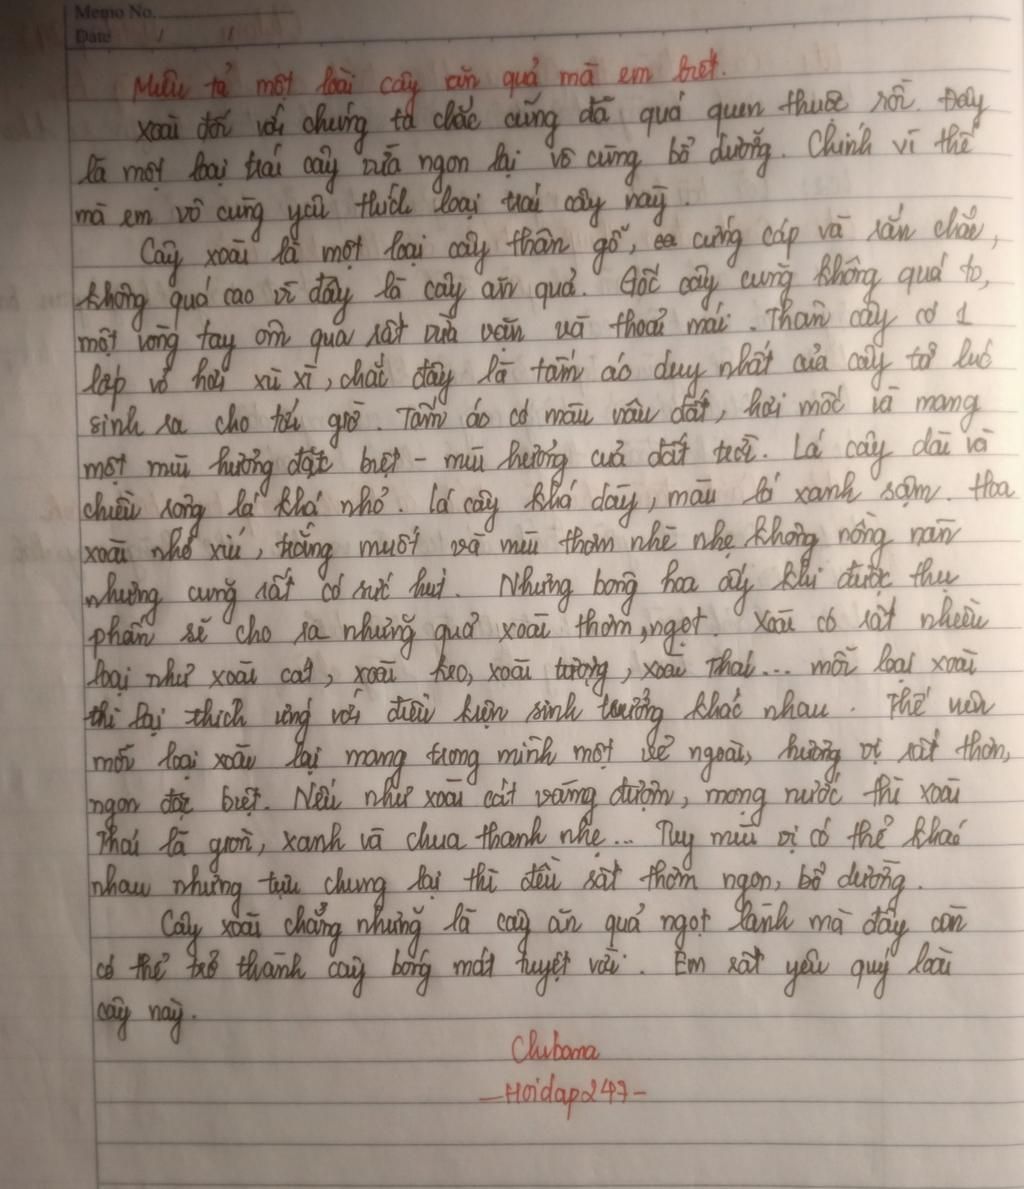 Memo No.
Date / /
Miêu tả một loài cây ăn quả mà em biết.
Xoài đối với chúng ta chắc cũng đã quá quen thuộc rồi. Đây
là một loại trái cây vừa ngon lại vô cùng bổ dưỡng. Chính vì thế
mà em vô cùng yêu thích loại trái cây này.
Cây xoài là một loại cây thân gỗ, cứng cáp và rắn chắc,
không quá cao vì đây là cây ăn quả. Gốc cây cũng không quá to,
một vòng tay ôm qua rất vừa vặn và thoải mái. Thân cây có 1
lớp vỏ hơi xù xì, chắc đây là tấm áo duy nhất của cây từ lúc
sinh ra cho tới giờ. Tấm áo có màu nâu đất, hơi mốc và mang
một mùi hương đặc biệt - mùi hương của đất trời. Lá cây dài và
chiều rộng lá khá nhỏ. Lá cây khá dày, màu lá xanh sậm. Hoa
xoài nhỏ xíu, trắng muốt và mùi thơm nhè nhẹ không nồng nàn
nhưng cũng rất có sức hút. Những bông hoa ấy khi được thụ
phấn sẽ cho ra những quả xoài thơm, ngọt. Xoài có rất nhiều
loại như xoài cát, xoài keo, xoài tượng, xoài Thái... mỗi loại xoài
thì lại thích ứng với điều kiện sinh trưởng khác nhau. Thế nên
mỗi loại xoài lại mang trong mình một vẻ ngoài, hương vị rất thơm,
ngon đặc biệt. Nếu như xoài cát vàng đượm, mọng nước thì xoài
Thái là giòn, xanh và chua thanh nhẹ... Tuy mùi vị có thể khác
nhau nhưng tựu chung lại thì đều rất thơm ngon, bổ dưỡng.
Cây xoài chẳng những là cây ăn quả ngọt lành mà đây còn
có thể trở thành cây bóng mát tuyệt vời. Em rất yêu quý loài
cây này.
Chubama
-Hoidap247-